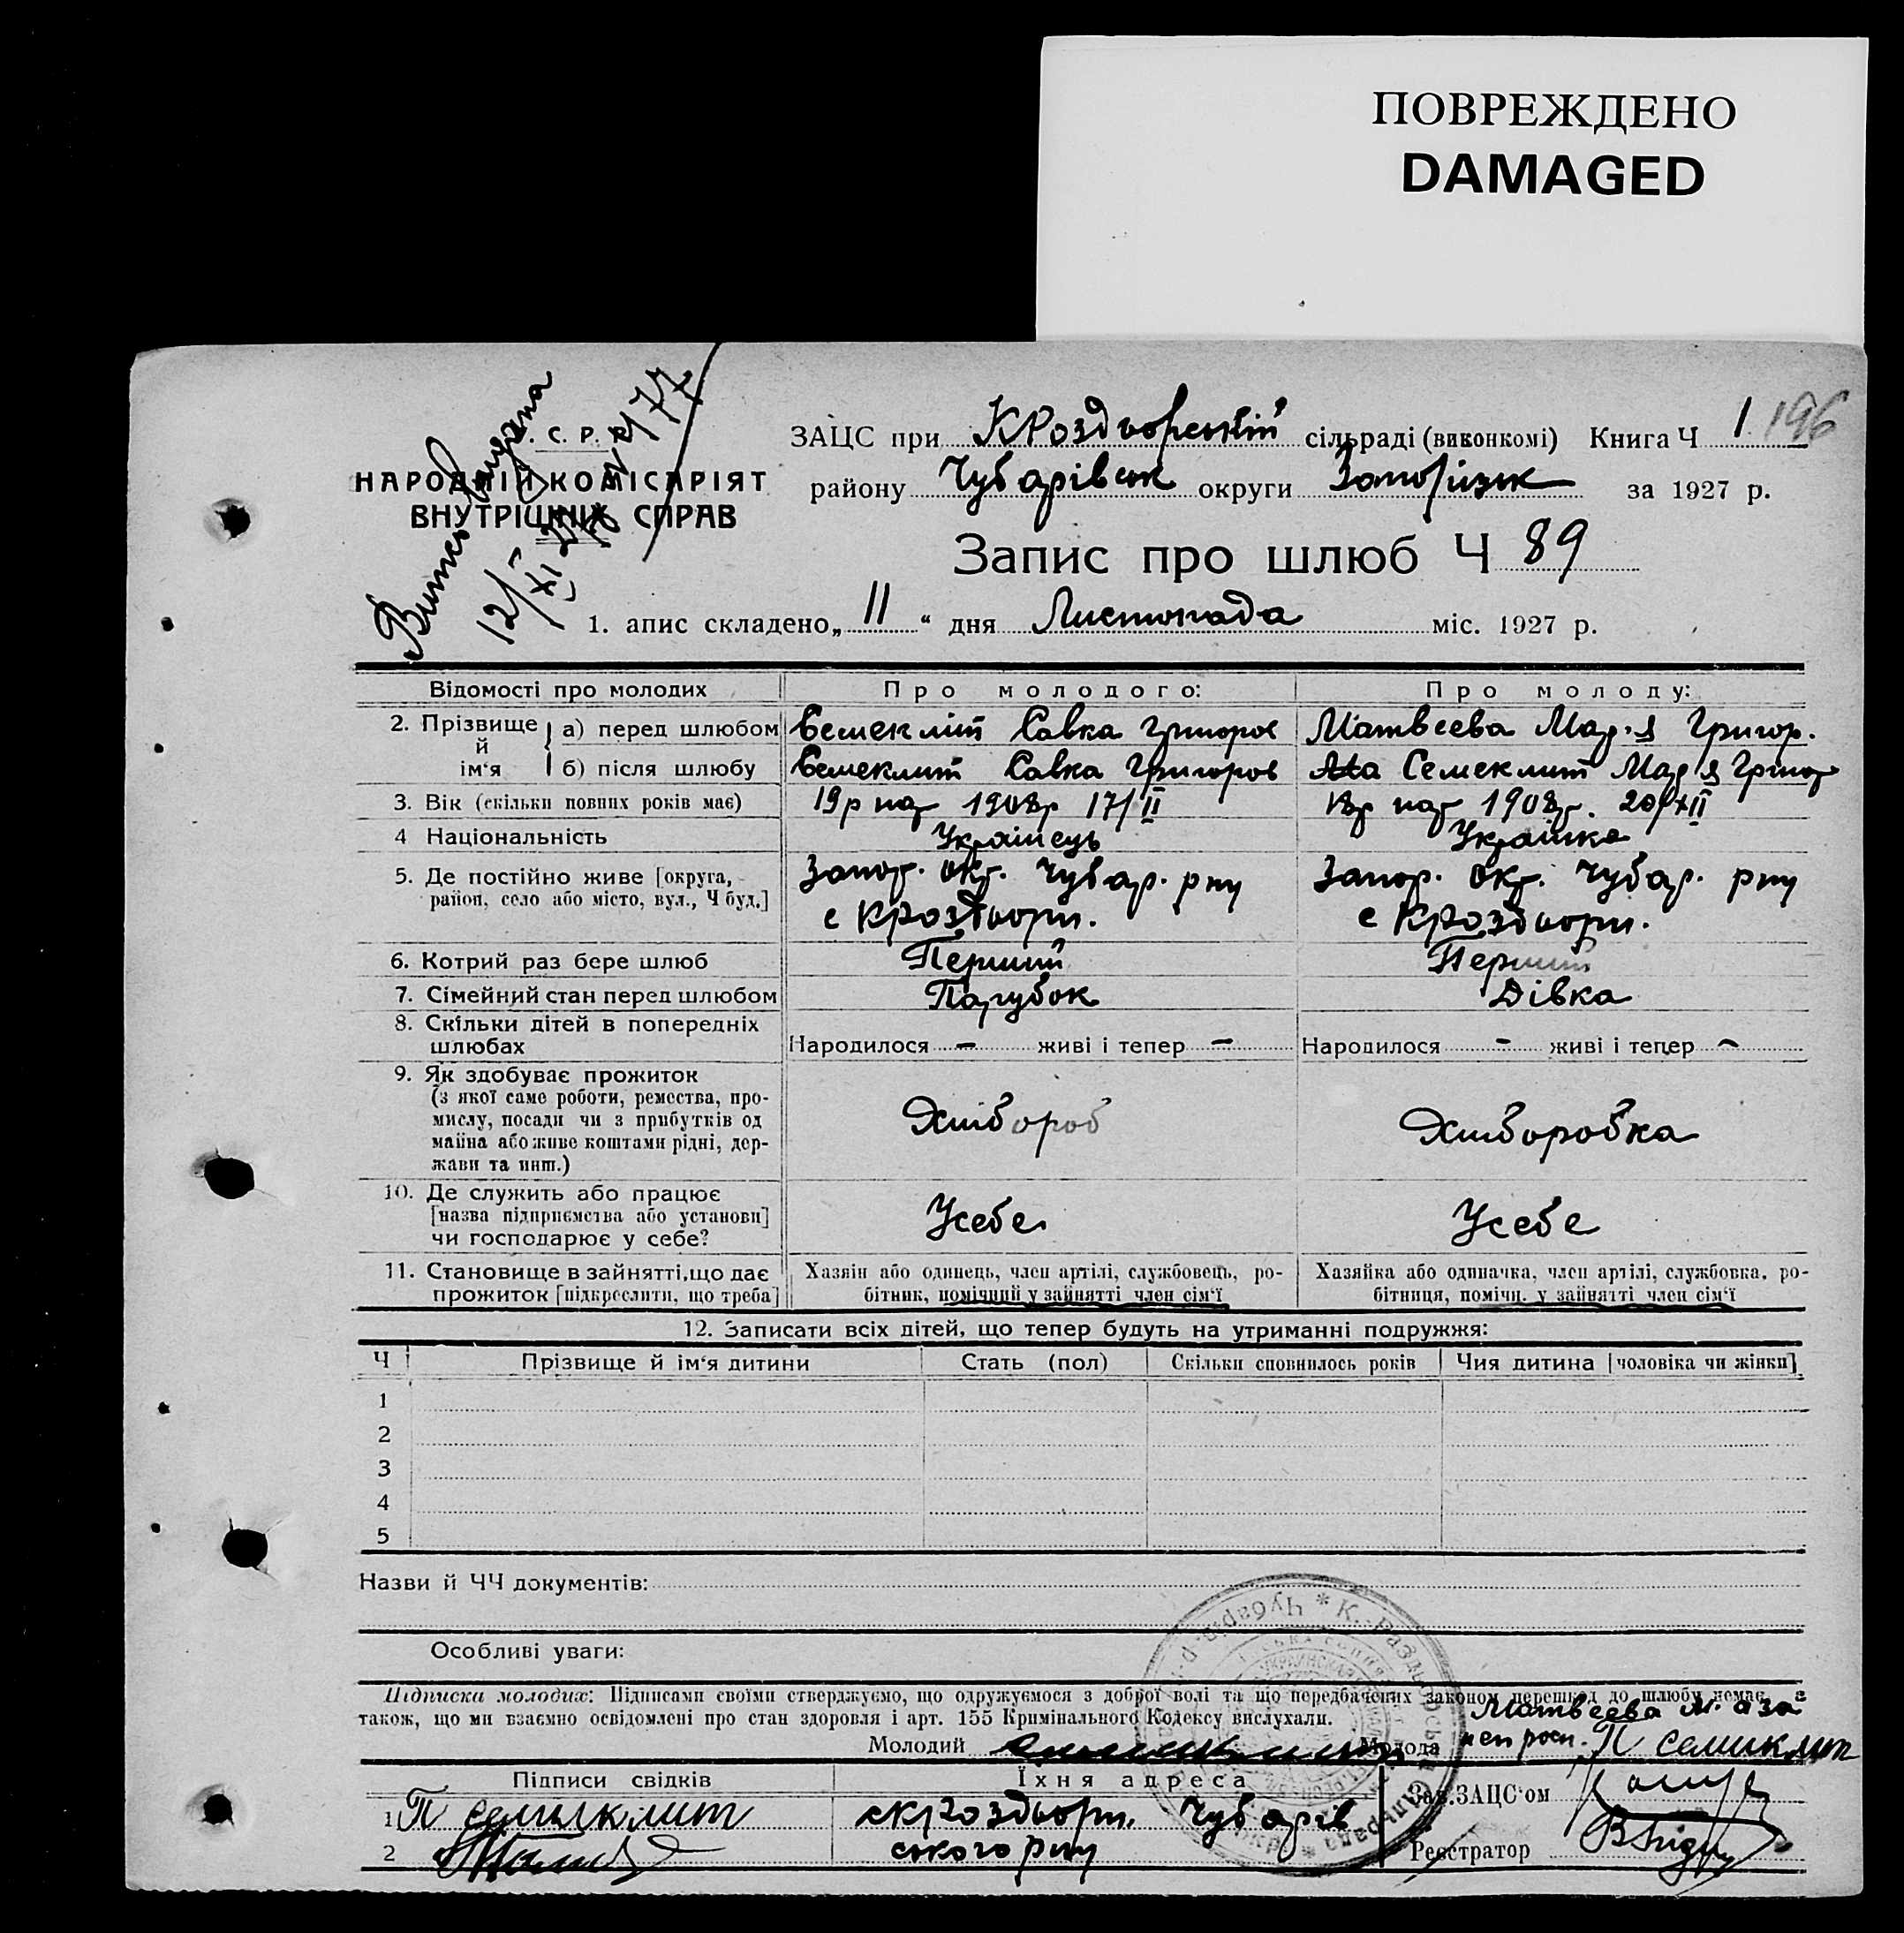 ПОВРЕЖДЕНО
DAMAGED
. С. Р. Р.
НАРОДНІЙ КОМІСАРІЯТ
ВНУТРІШНІХ СПРАВ
12/XI 27
ЗАЦС при К Роздорській сільраді (виконкомі) Книга Ч 1 196
району Чубарівськ округи Запорізьк за 1927 р.
Запис про шлюб Ч 89
1. апис складено „ 11 “ дня Листопада міс. 1927 р.
Відомості про молодих Про молодого: Про молоду:
2. Прізвище й ім‘я а) перед шлюбом Семекліт Савка Григоров Матвеева Мар.я Григор.
б) після шлюбу Семеклит Савка Григоров Семеклит Мар я Григор
3. Вік (скільки повних років має) 19р нар 1908р 17/II 19р нар 1908р. 20/XII
4 Національність Українець Українка
5. Де постійно живе [округа, Запор. окр. Чубар. рну Запор. окр. Чубар. рну
район, село або місто, вул., Ч буд.] с КРоздьори. с КРоздьори.
6. Котрий раз бере шлюб Перший Перший
7. Сімейний стан перед шлюбом Парубок Дівка
8. Скільки дітей в попередніх
шлюбах Народилося - живі і тепер - Народилося - живі і тепер -
9. Як здобуває прожиток
(з якої саме роботи, ремества, про-
мислу, посади чи з прибутків од Хлібороб Хліборобка
майна або живе коштами рідні, дер-
жави та инш.)
10. Де служить або працює
[назва підприємства або установи] Усебе Усебе
чи господарює у себе?
11. Становище в зайнятті, що дає Хазяін або одинець, член артілі, службовець, ро- Хазяйка або одиначка, член артілі, службовка, ро-
прожиток [підкреслити, що треба] бітник, помічний у зайнятті член сім‘ї бітниця, помічн. у зайнятті член сім‘ї
12. Записати всіх дітей, що тепер будуть на утриманні подружжя:
Ч Прізвище й ім‘я дитини Стать (пол) Скільки сповнилось років Чия дитина [чоловіка чи жінки]
1
2
3
4
5
Назви й ЧЧ документів:
Особливі уваги:
Підписка молодих: Підписами своїми стверджуємо, що одружуемося з доброї волі та що передбачених законом перешкод до шлюбу немає, а
також, що ми взаємно освідомлені про стан здоровля і арт. 155 Кримінального Кодексу вислухали. Матвеева М. а за
Молодий Молода непросп. П Семиклит
Підписи свідків Їхня адреса Зав. ЗАЦС‘ом
1 П Семиклит с КРоздьори. Чубарів
2 ського рну Реєстратор